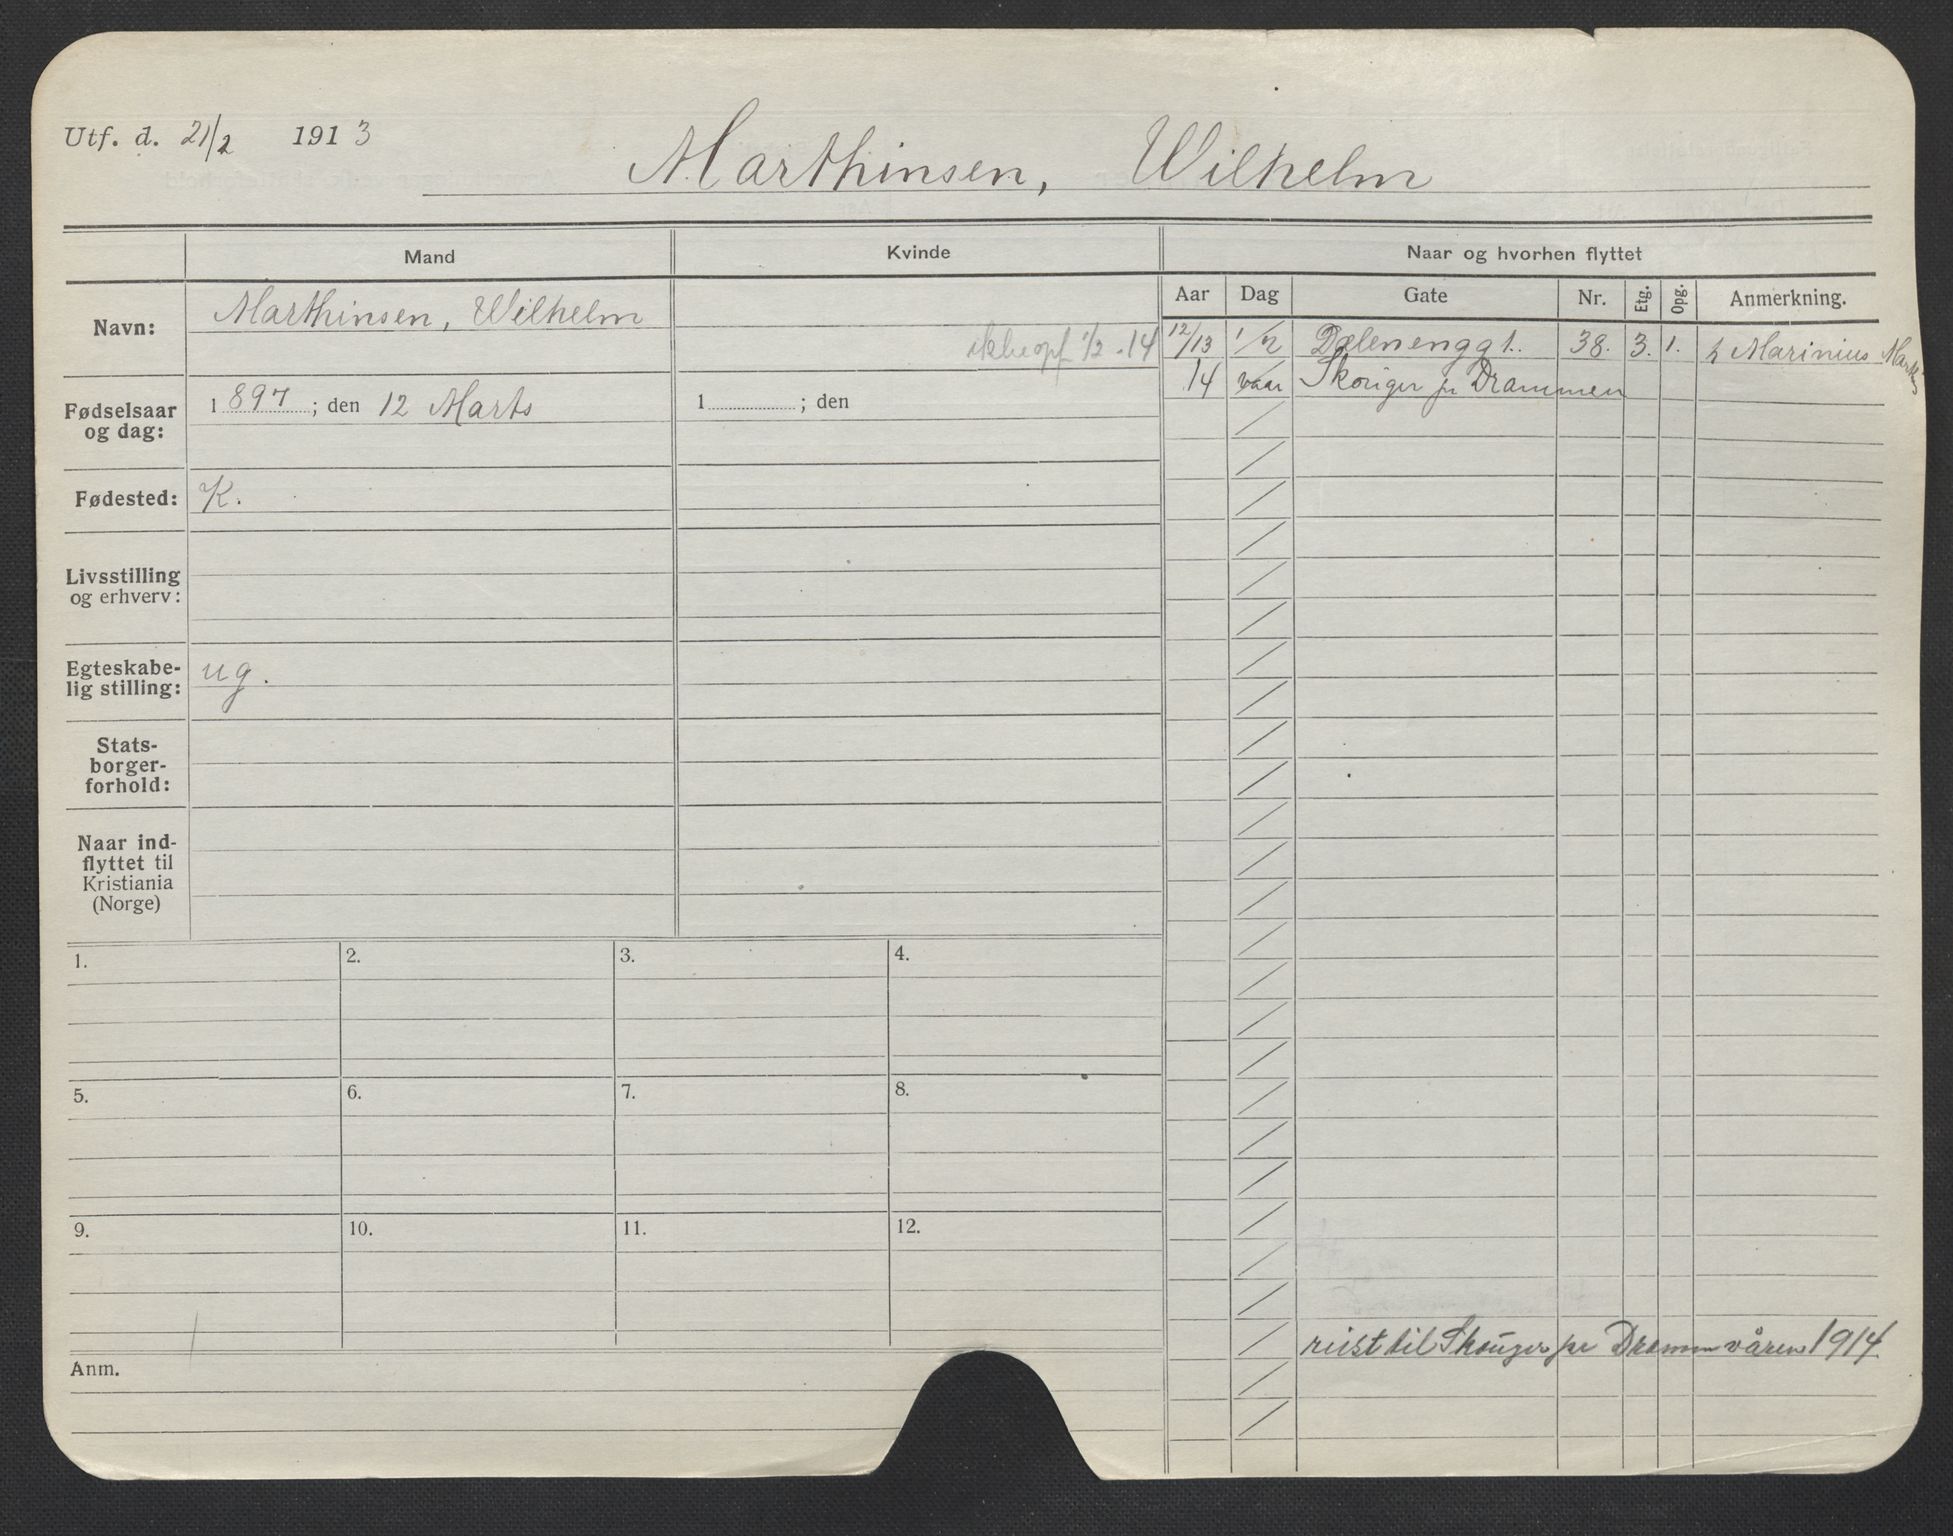 Utf. d. 21/2 1913
Marthinsen, Wilhelm
Mand Kvinde Naar og hvorhen flyttet
Aar Dag Gate Nr. Etg. Opg. Anmerkning.
Navn: Marthinsen, Wilhelm
ikke opf 1/2 - 14
12/13 1/2 Dælenenggt. 38. 3. 1. h Marinius
14 vaar Skouger pr Drammen
Fødselsaar
og dag:
1897; den 12 Marts
1 ; den
Fødested: K.
Livsstilling
og erhverv:
Egteskabe-
lig stilling:
ug.
Stats-
borger-
forhold:
Naar ind-
flyttet til
Kristiania
(Norge)
1. 2. 3. 4.
5. 6. 7. 8.
9. 10. 11. 12.
reist til Skouger pr Dramm våren 1914
Anm.